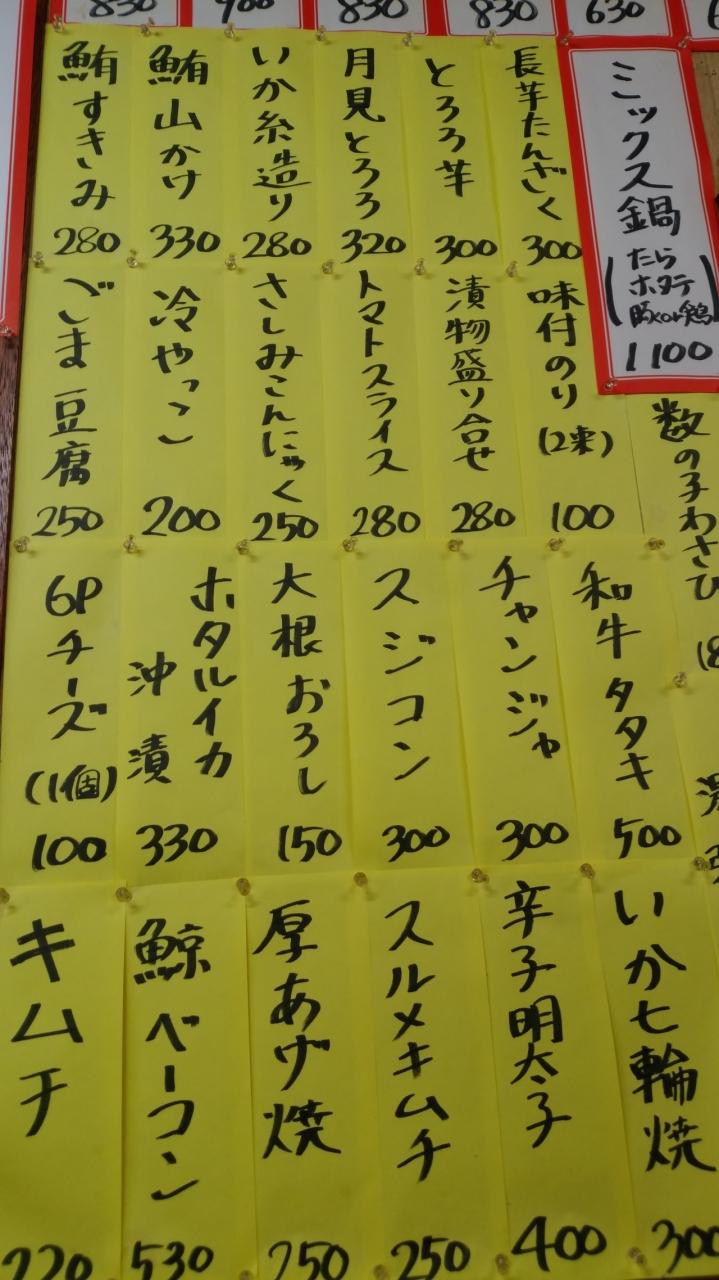 830
900
830
830
630
ミックス鍋
(たら
ホタテ
豚or鶏)
1100
長芋たんざく
300
とろろ芋
300
月見とろろ
320
いか糸造り
280
鮪山かけ
330
鮪すきみ
280
数の子わさび
味付のり
(2束)
100
漬物盛り合せ
280
トマトスライス
280
さしみこんにゃく
250
冷やっこ
200
ごま豆腐
250
和牛タタキ
500
チャンジャ
300
スジコン
300
大根おろし
150
ホタルイカ
沖漬
330
6Pチーズ
(1個)
100
いか七輪焼
300
辛子明太子
400
スルメキムチ
250
厚あげ焼
250
鯨ベーコン
530
キムチ
220